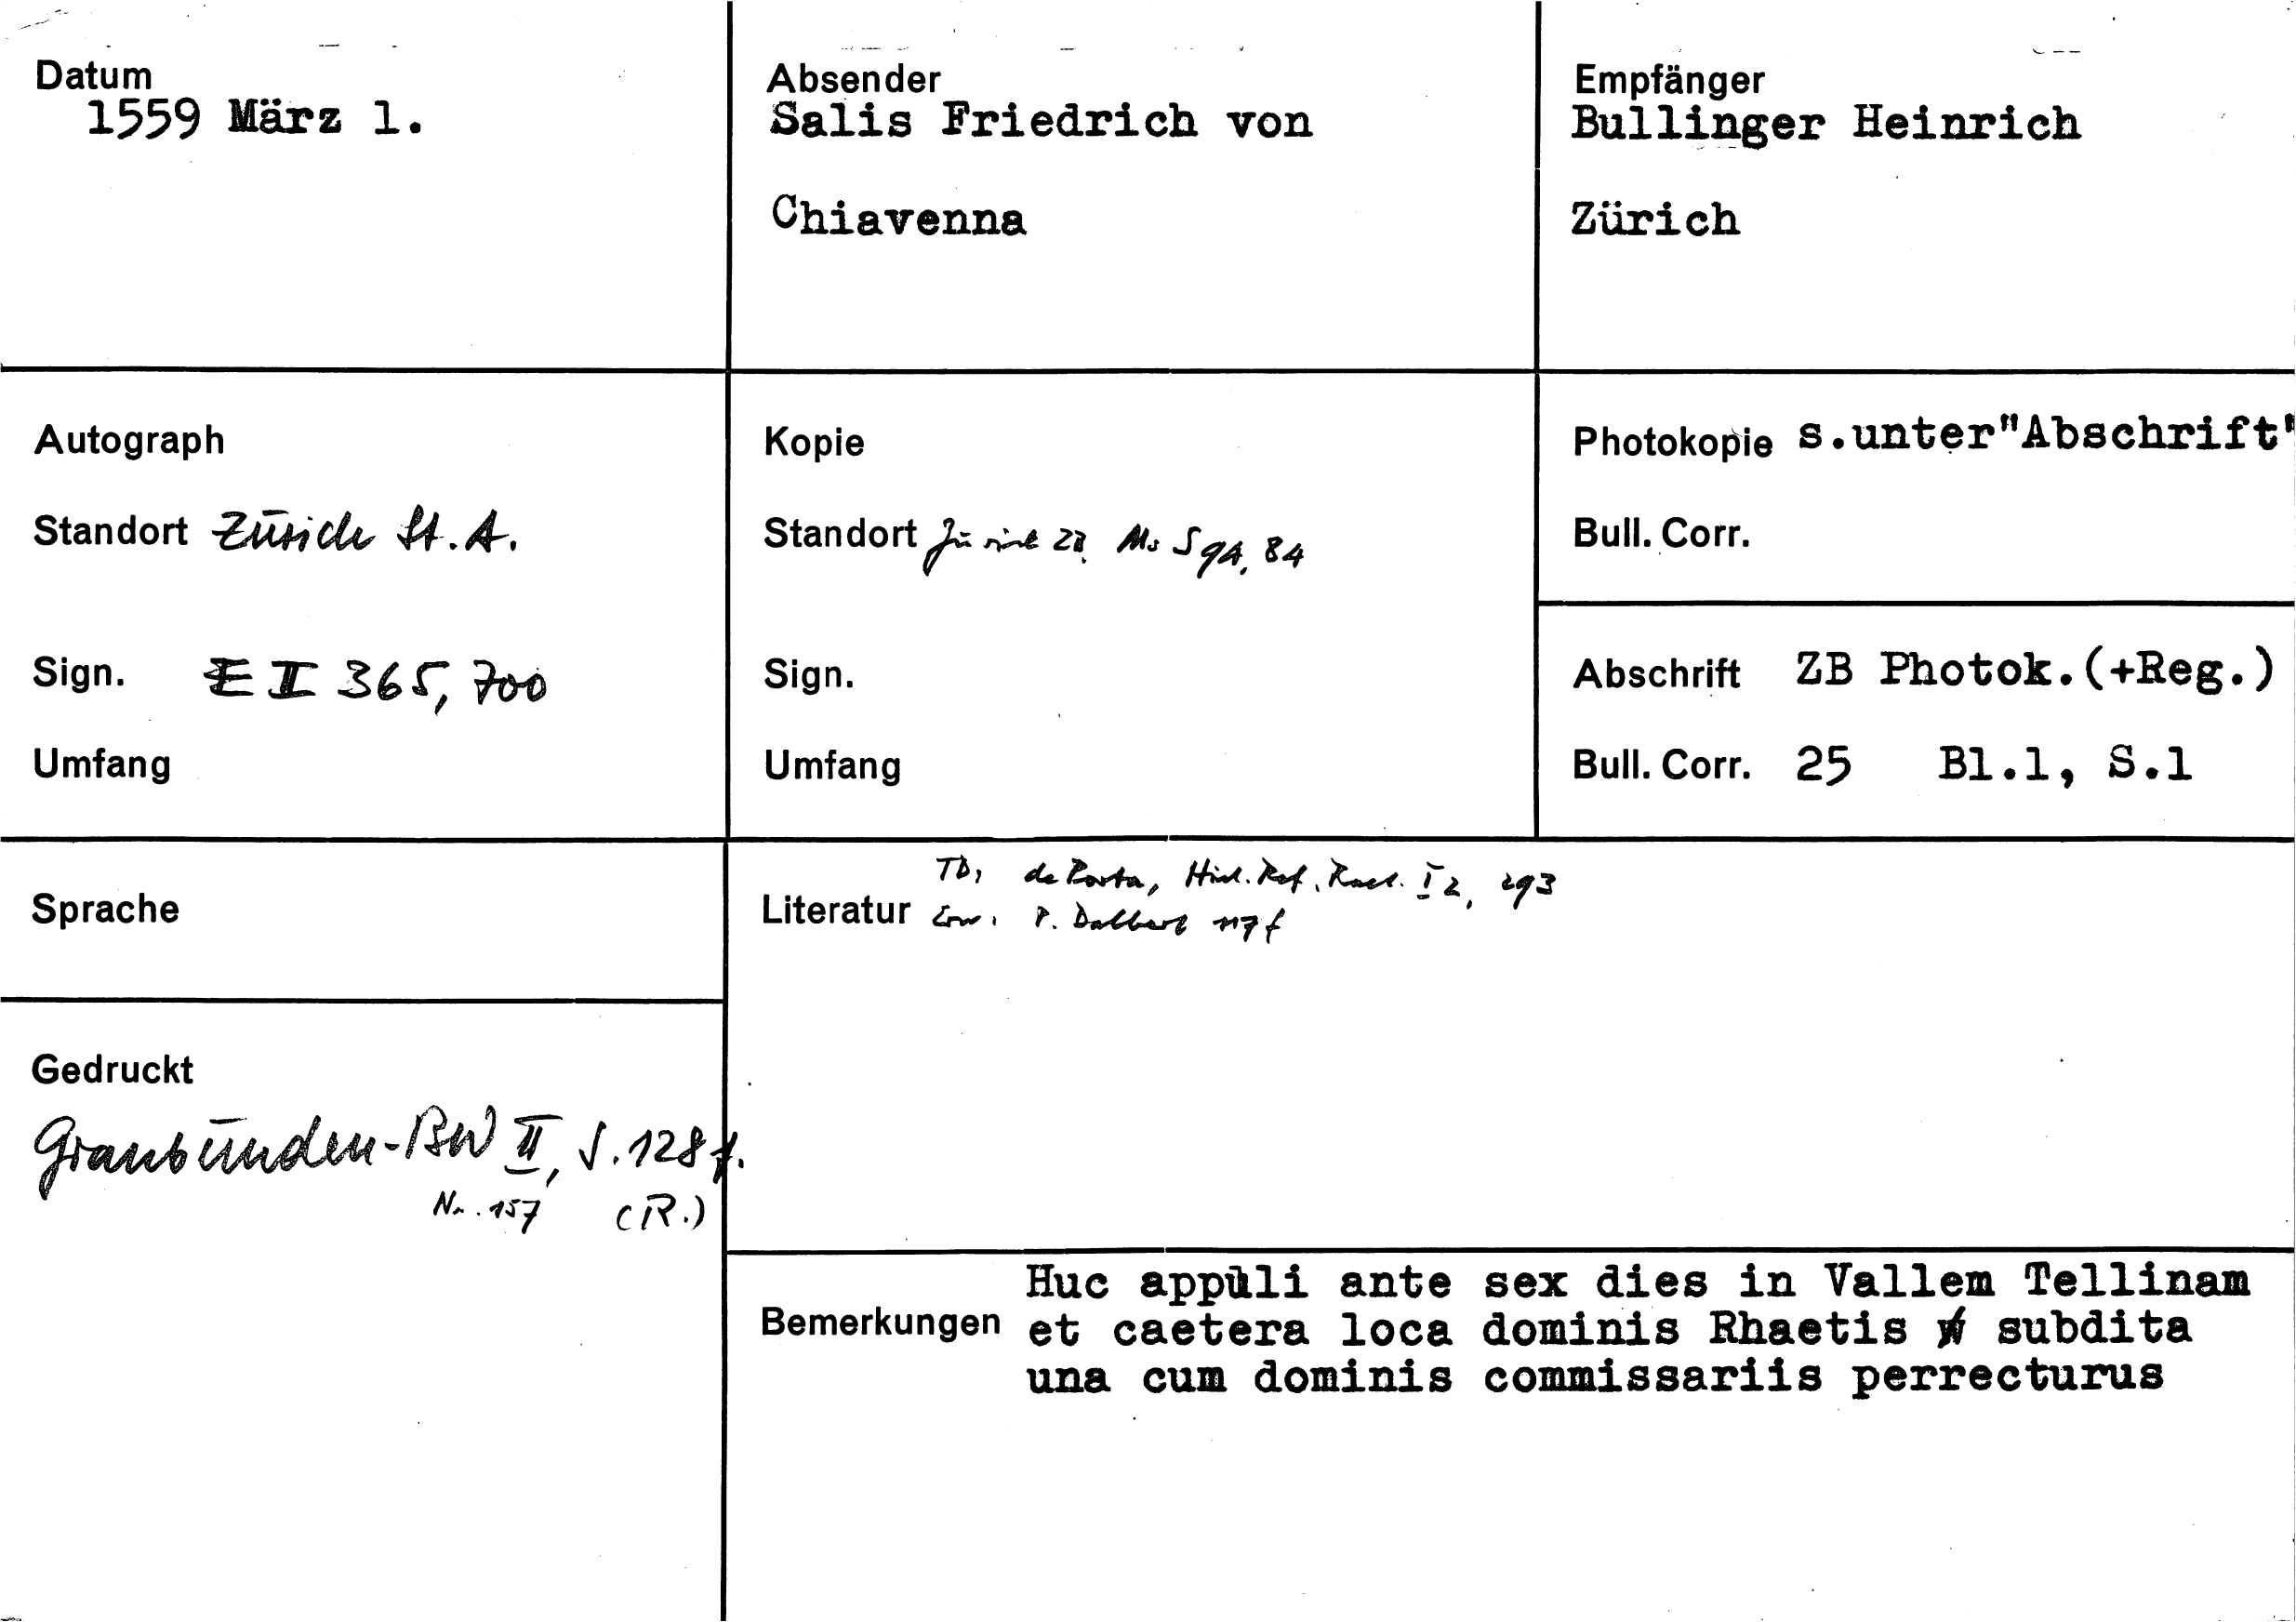 Datum
1559 März 1.
Absender
Salis Friedrich von
Chiavenna
Empfänger
Bullinger Heinrich
Zürich
Autograph
Standort Zürich St.A.
Sign. E II 365, 700
Umfang
Kopie
Standort Zürich ZB Ms S 94, 84
Sign.
Umfang
Photokopie s.unter"Abschrift"
Bull. Corr.
Abschrift ZB Photok.(+Reg.)
Bull. Corr. 25 Bl.1, S.1
Sprache
Gedruckt
Graubünden-BW II, S. 128 f.
Nr. 157 (R.)
Td, de Porta, Hist. Ref. Raet. I 2, 293
Literatur Erw. P. Dalbert 117 f
Bemerkungen
Huc appuli ante sex dies in Vallem Tellinam
et caetera loca dominis Rhaetis subdita
una cum dominis commissariis perrecturus